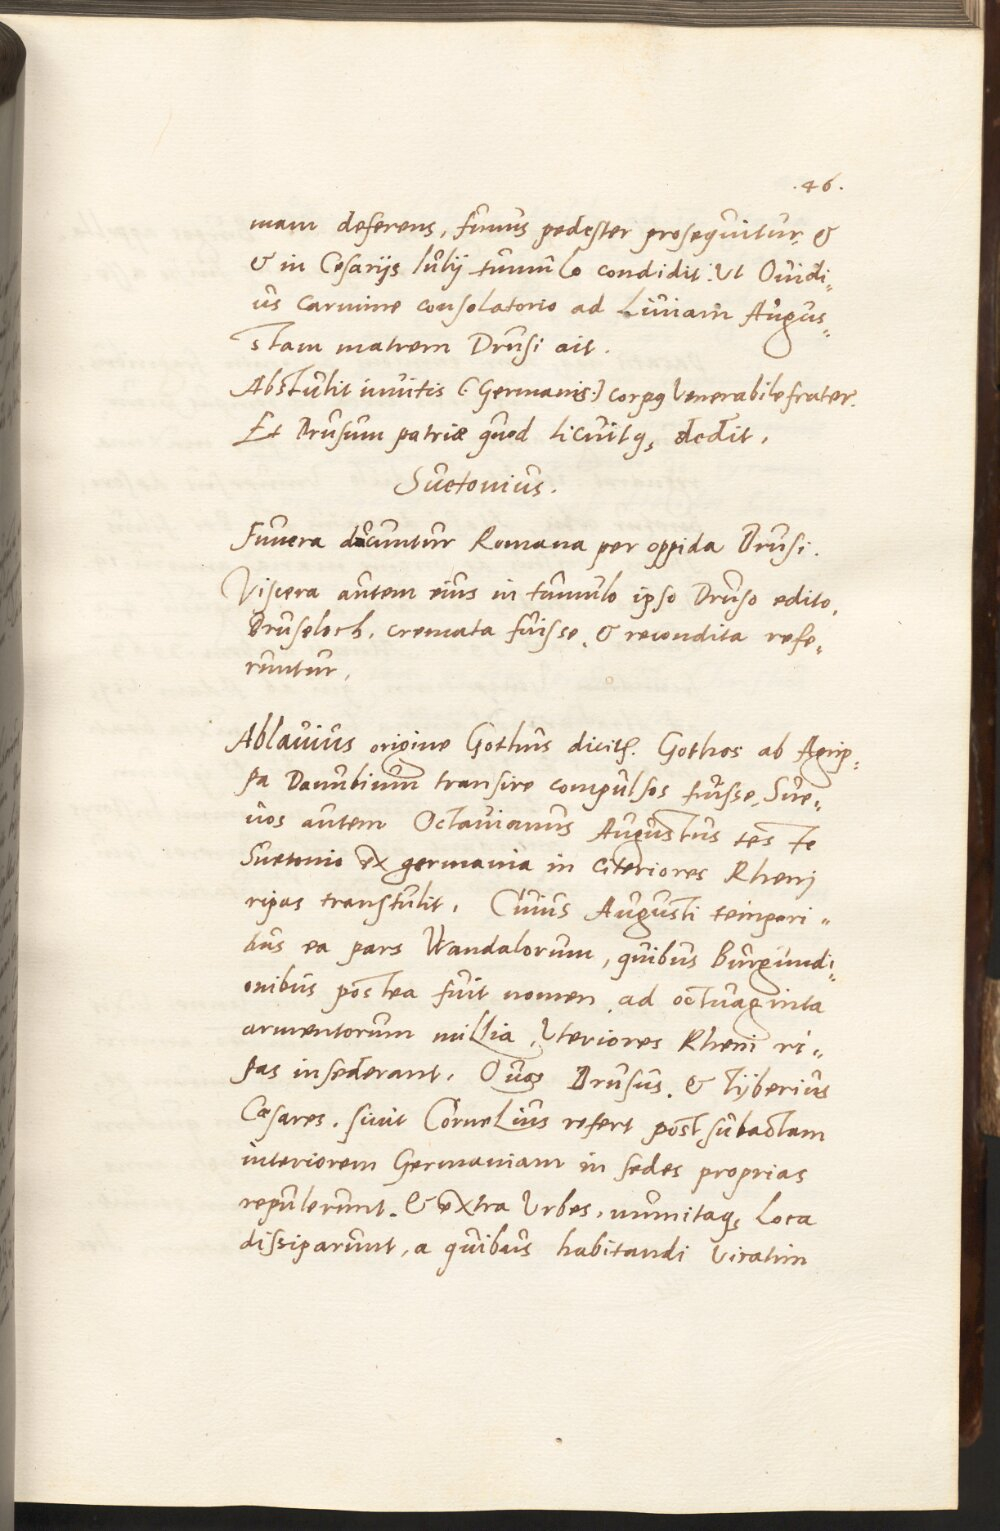 .46.
mam deferens, funus pedester prosequitur, &
& in Cesarijs Iulij tumulo condidit. Ut Ouidi„
us carmine consolatorio ad Liuiam Augus„
stam matrem Drusi ait.
Abstulit inuitis (: Germanis :) corpꝯ Venerabile frater.
Et Drusum patriæ quod licuitqꝫ dedit.
Suetonius.
Funera ducuntur Romana per oppida Drusi.
Viscera autem eius in tumulo ipso Druso edito,
Druseloch, cremata fuisse, & recondita refe„
runtur,
Ablauius origine Gothus dicitꝭ. Gothos ab Agrip„
pa Danubium transire compulsos fuisse, Sue„
uos autem Octauianus Augustus teste
Suetonio ex germania in citeriores Rheni
ripas transtulit. Cuius Augusti tempori„
bus ea pars Wandalorum, quibus Burgundi„
onibus postea fuit nomen, ad octuaginta
armentorum millia, Vteriores Rheni ri„
pas insederant. Quos Drusus. & Tijberius
Cæsares, sicut Cornelius refert post subactam
interiorem Germaniam in sedes proprias
repulerunt. & extra Vrbes, munitaqꝫ Loca
dissiparunt, a quibus habitandi vicatim